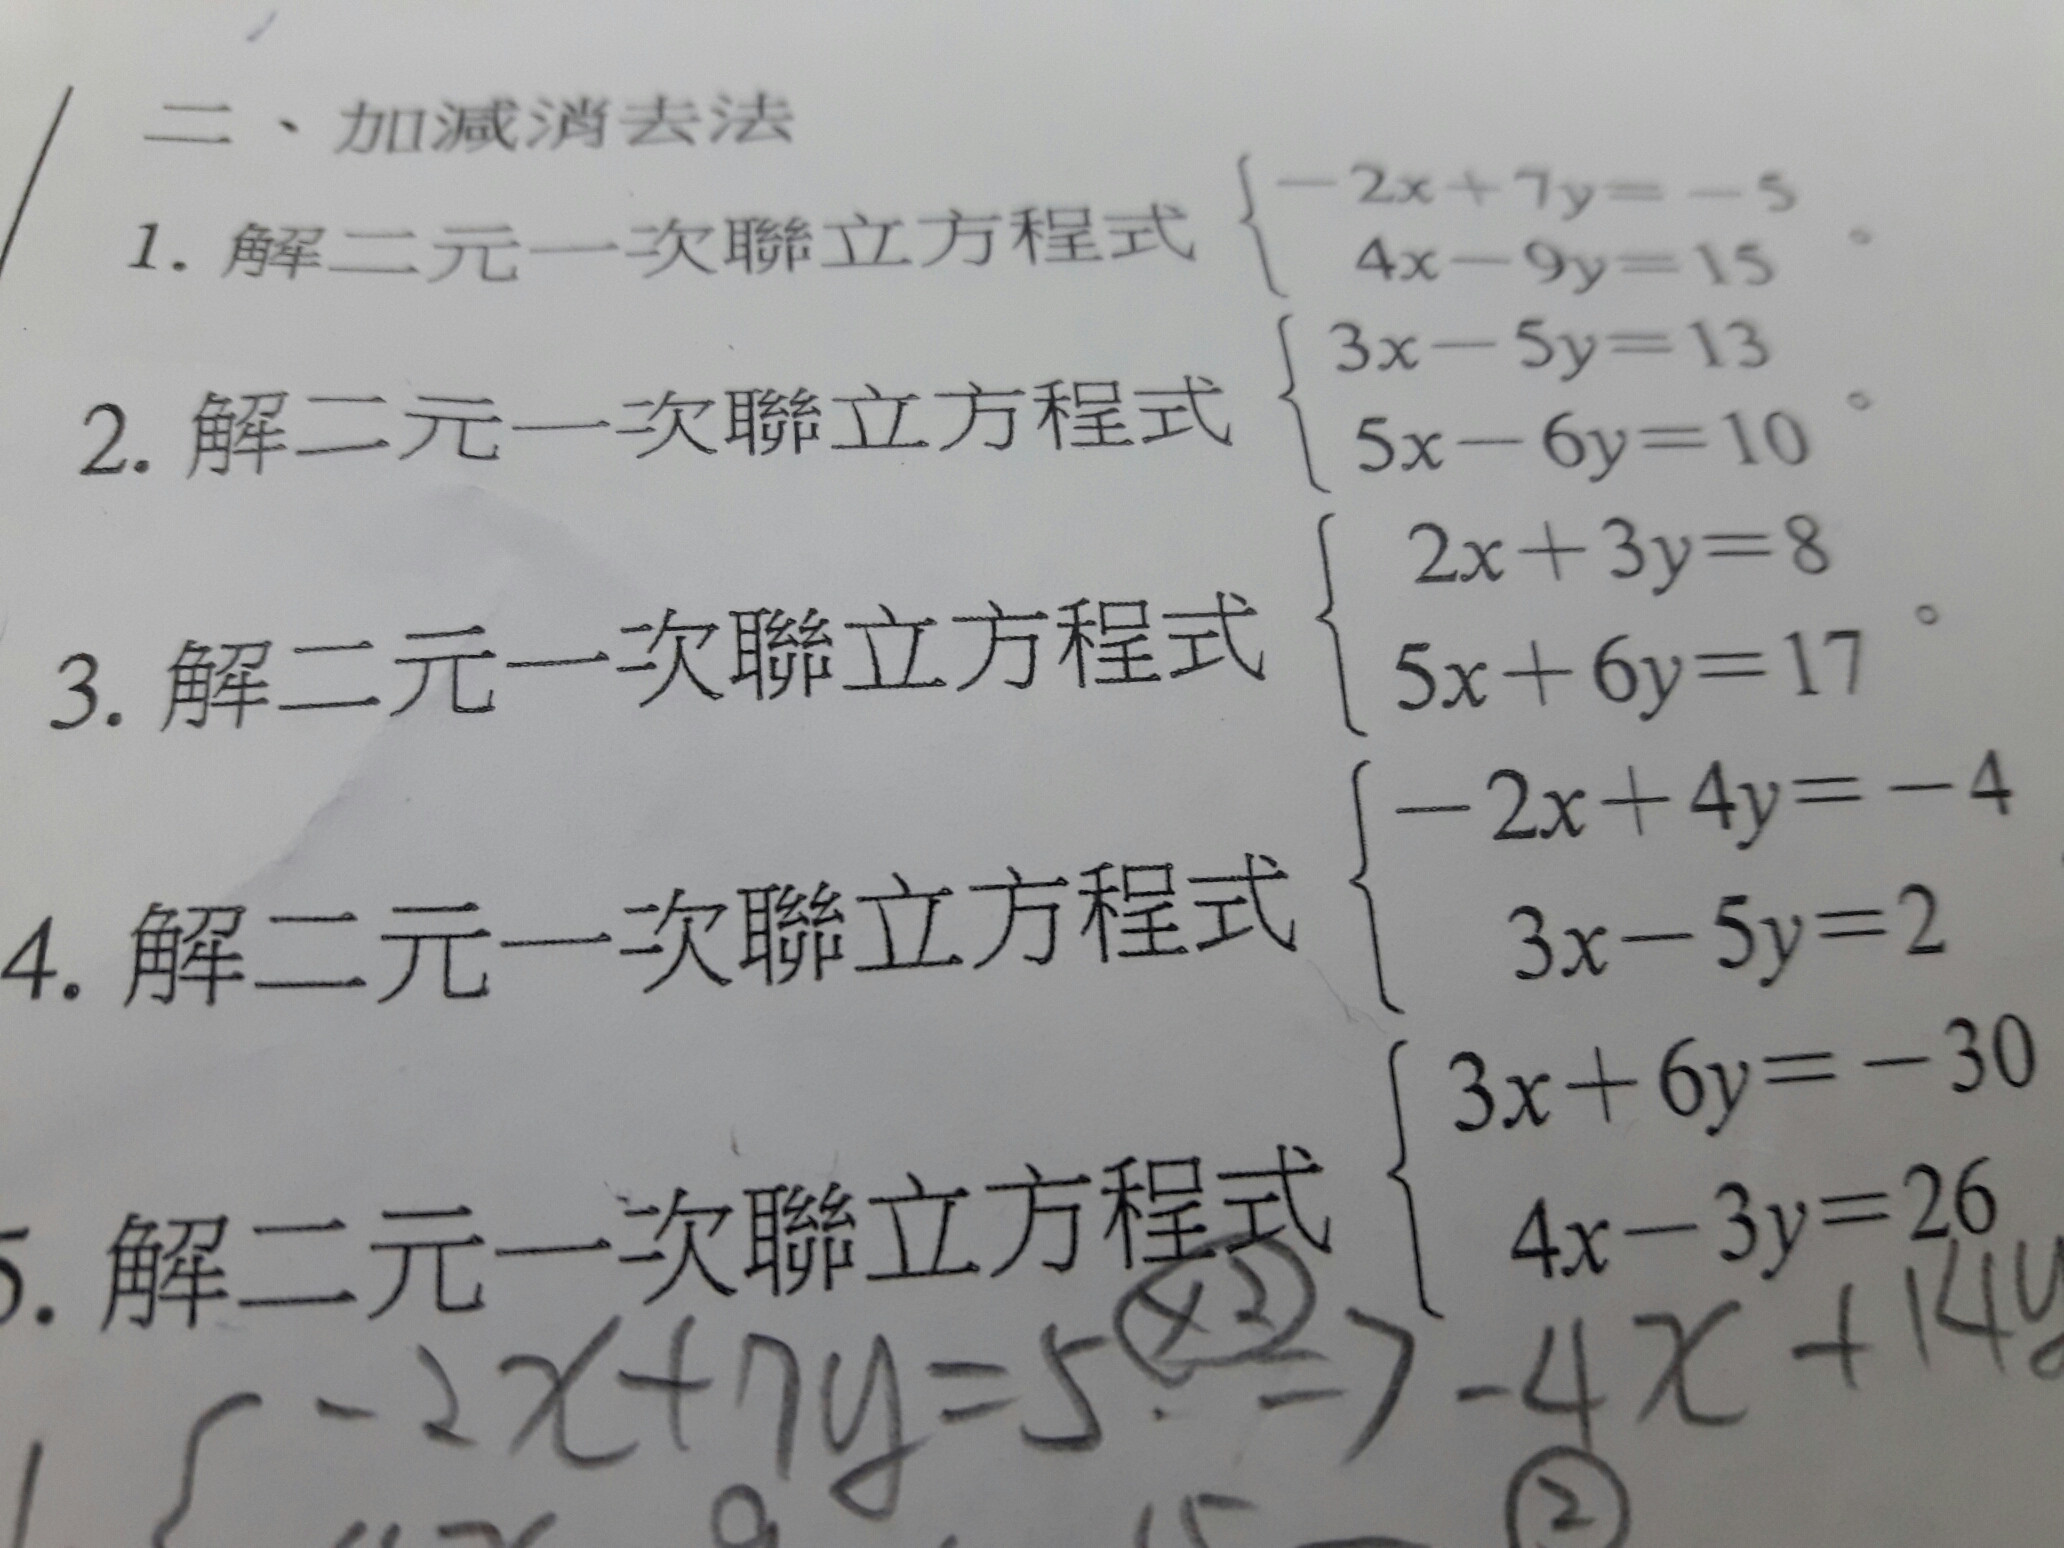 二、加減消去法
1. 解二元一次聯立方程式 { -2x+7y=-5
4x-9y=15 。
2. 解二元一次聯立方程式 { 3x-5y=13
5x-6y=10 。
3. 解二元一次聯立方程式 { 2x+3y=8
5x+6y=17 。
4. 解二元一次聯立方程式 { -2x+4y=-4
3x-5y=2
5. 解二元一次聯立方程式 { 3x+6y=-30
4x-3y=26
{ -2x+7y=5 ×2 => -4x+14y
②